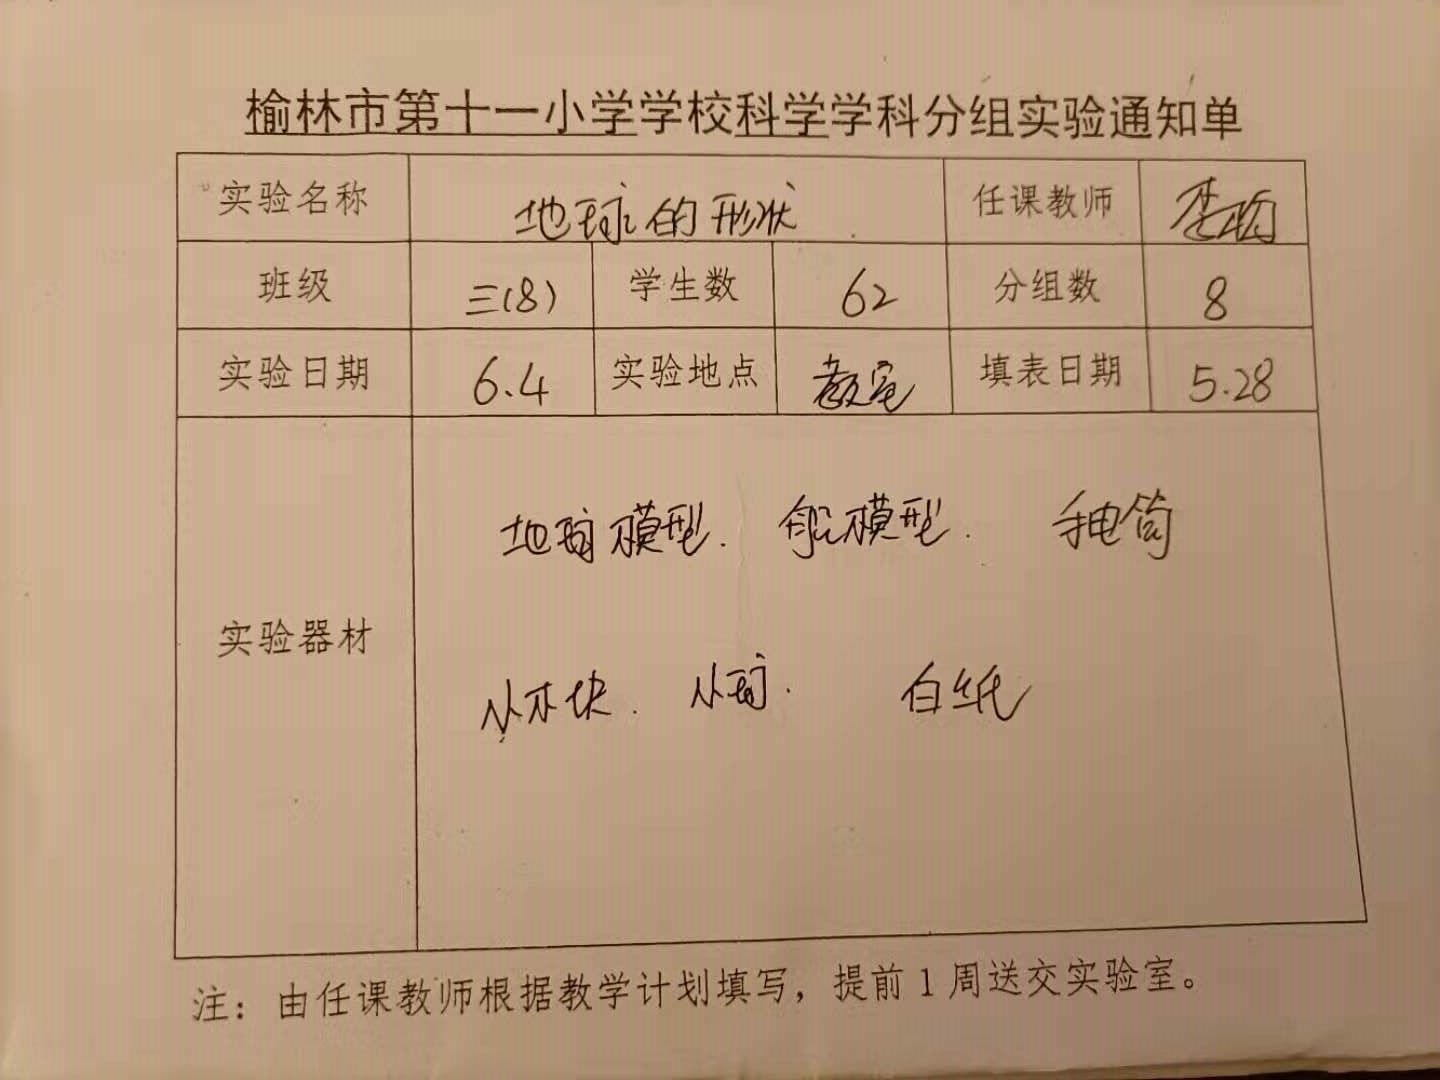 榆林市第十一小学学校科学学科分组实验通知单
实验名称 地球的形状 任课教师 李
班级 三(8) 学生数 62 分组数 8
实验日期 6.4 实验地点 教室 填表日期 5.28
地球模型. 船模型. 手电筒
实验器材
小木块. 小球. 白纸
注：由任课教师根据教学计划填写，提前1周送交实验室。